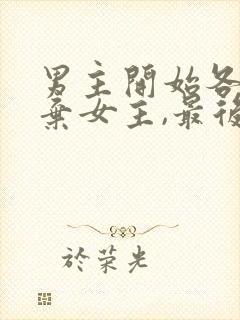 男主開始各
棄女主,最後
於荣光